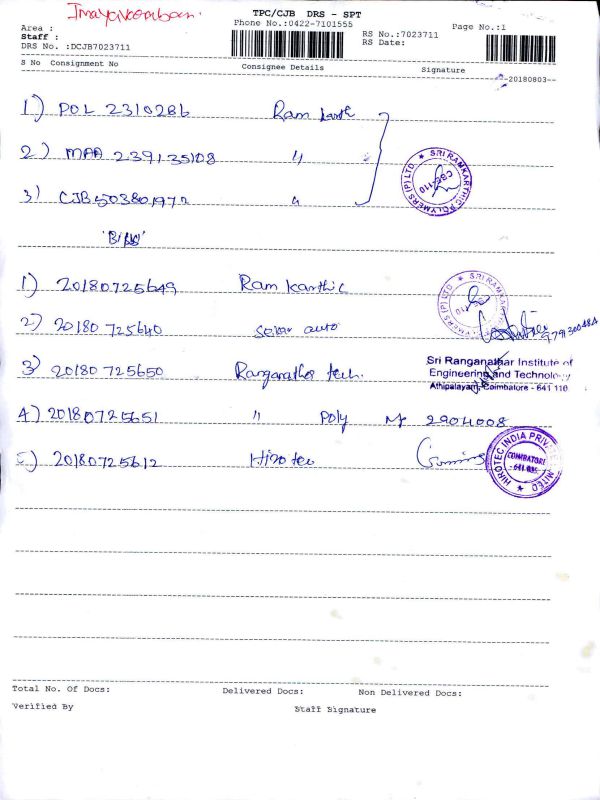 Imayavaramban.
TPC/CJB DRS - SPT
Phone No.:0422-7101555
Page No.:1
Area :
Staff :
DRS No. :DCJB7023711
RS No.:7023711
RS Date:
S No Consignment No Consignee Details Signature
--20180803--
1) POL 2310286 Ram karth
2) MAA 239135108 "
3) CJB 503801972 "
SRI RAMKARTHIC POLYMERS (P) LTD.
CBE-110
'Bills'
1) 20180725649 Ram Karthic
2) 20180725640 Selar auto
3) 20180725650 Ranganathar tech.
Sri Ranganathar Institute of
Engineering and Technology
Athipalayam, Coimbatore - 641 110
4) 20180725651 " Poly 2904008
5) 20180725612 Hirotec
HIROTEC INDIA PRIVATE LIMITED
COIMBATORE
Total No. Of Docs: Delivered Docs: Non Delivered Docs:
Verified By Staff Signature